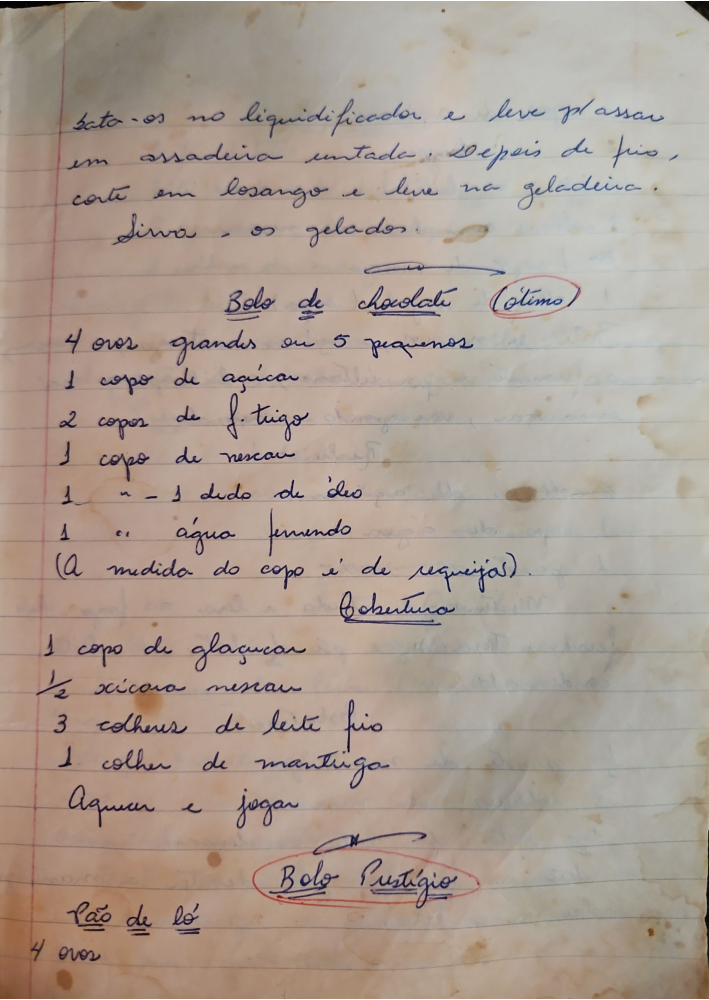 bata-os no liquidificador e leve p/ assar
em assadeira untada. Depois de frio,
corte em losango e leve na geladeira.
Sirva-os gelados.
Bolo de chocolate (ótimo)
4 ovos grandes ou 5 pequenos
1 copo de açúcar
2 copos de f. trigo
1 copo de nescau
1 " - 1 dedo de óleo
1 " água fervendo
(A medida do copo é de requeijão).
Cobertura
1 copo de glaçucar
1/2 xícara nescau
3 colheres de leite frio
1 colher de manteiga
Aquecer e jogar
Bolo Prestígio
Pão de ló
4 ovos